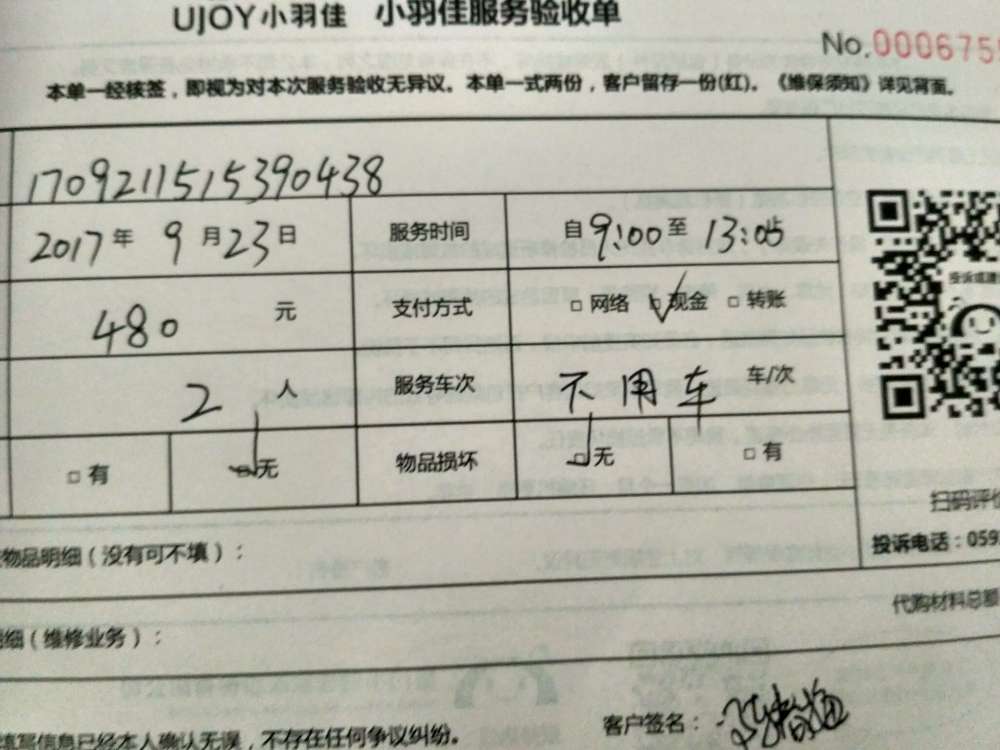 UJOY小羽佳 小羽佳服务验收单
No.000675
本单一经核签，即视为对本次服务验收无异议。本单一式两份，客户留存一份(红)。《维保须知》详见背面。
1709211515390438
2017年9月23日 服务时间 自9:00至13:05止
480元 支付方式 □网络 ☑现金 □转账
2人 服务车次 不用车 车/次
□有 ☑无 物品损坏 ☑无 □有
投诉或建
扫码评价
物品明细（没有可不填）：
投诉电话：059
代购材料总额
细（维修业务）：
填写信息已经本人确认无误，不存在任何争议纠纷。
客户签名：